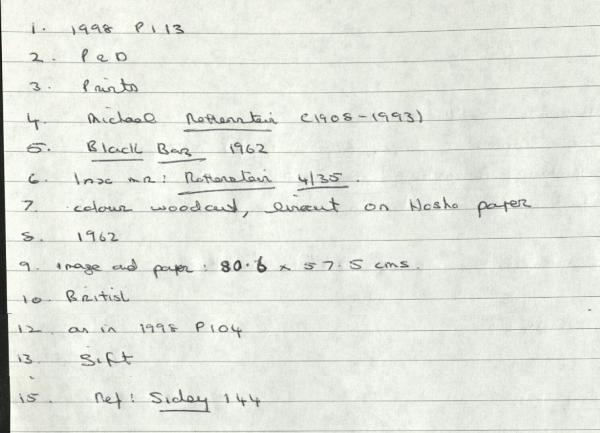 1. 1998 P113
2. P & D
3. Prints
4. Michael Rothenstein (1908-1993)
5. Black Bar 1962
6. Insc mr: Rothenstein 4/35.
7. colour woodcut, linocut on Hosho paper
8. 1962
9. image and paper: 80.6 x 57.5 cms.
10. British
12. as in 1998 P104
13. Gift
15. Ref: Sidey 144